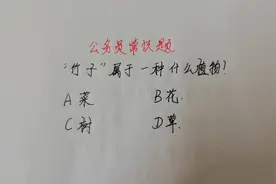 公务员常识题
“竹子”属于一种什么植物?
A菜 B花
C树 D草.